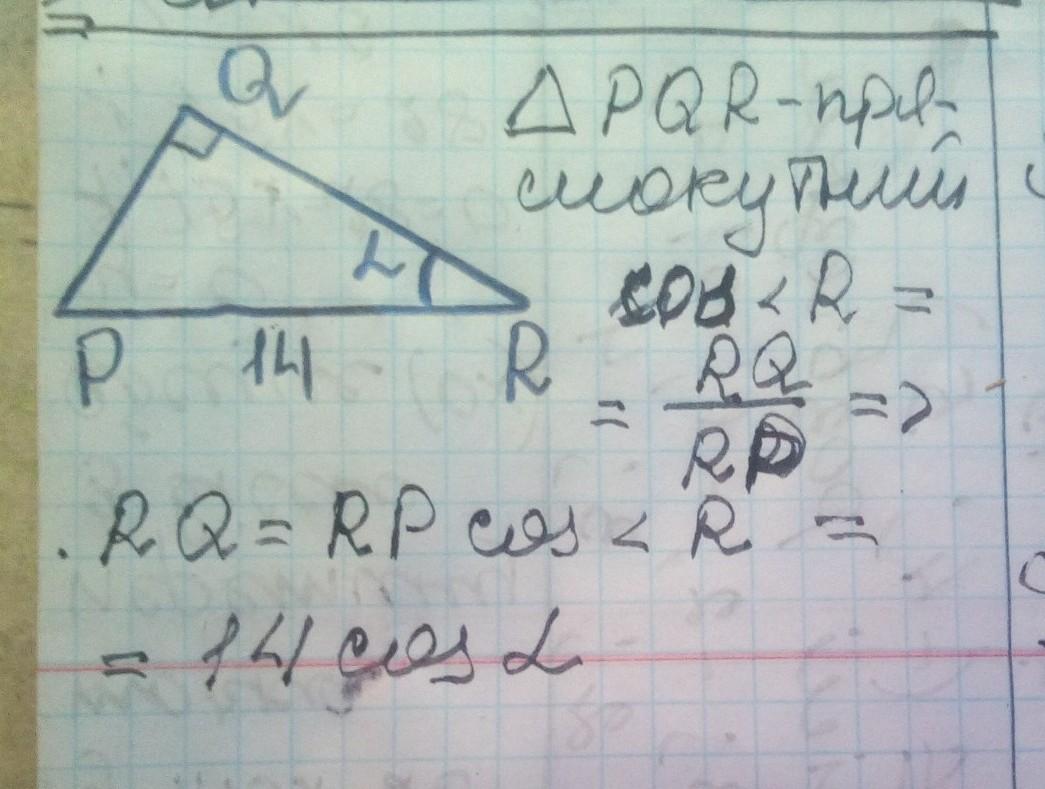 Q
P
14
R
α
△ PQR - пря-
мокутний
cos < R =
= RQ / RP =>
RQ = RP cos < R =
= 14 cos α